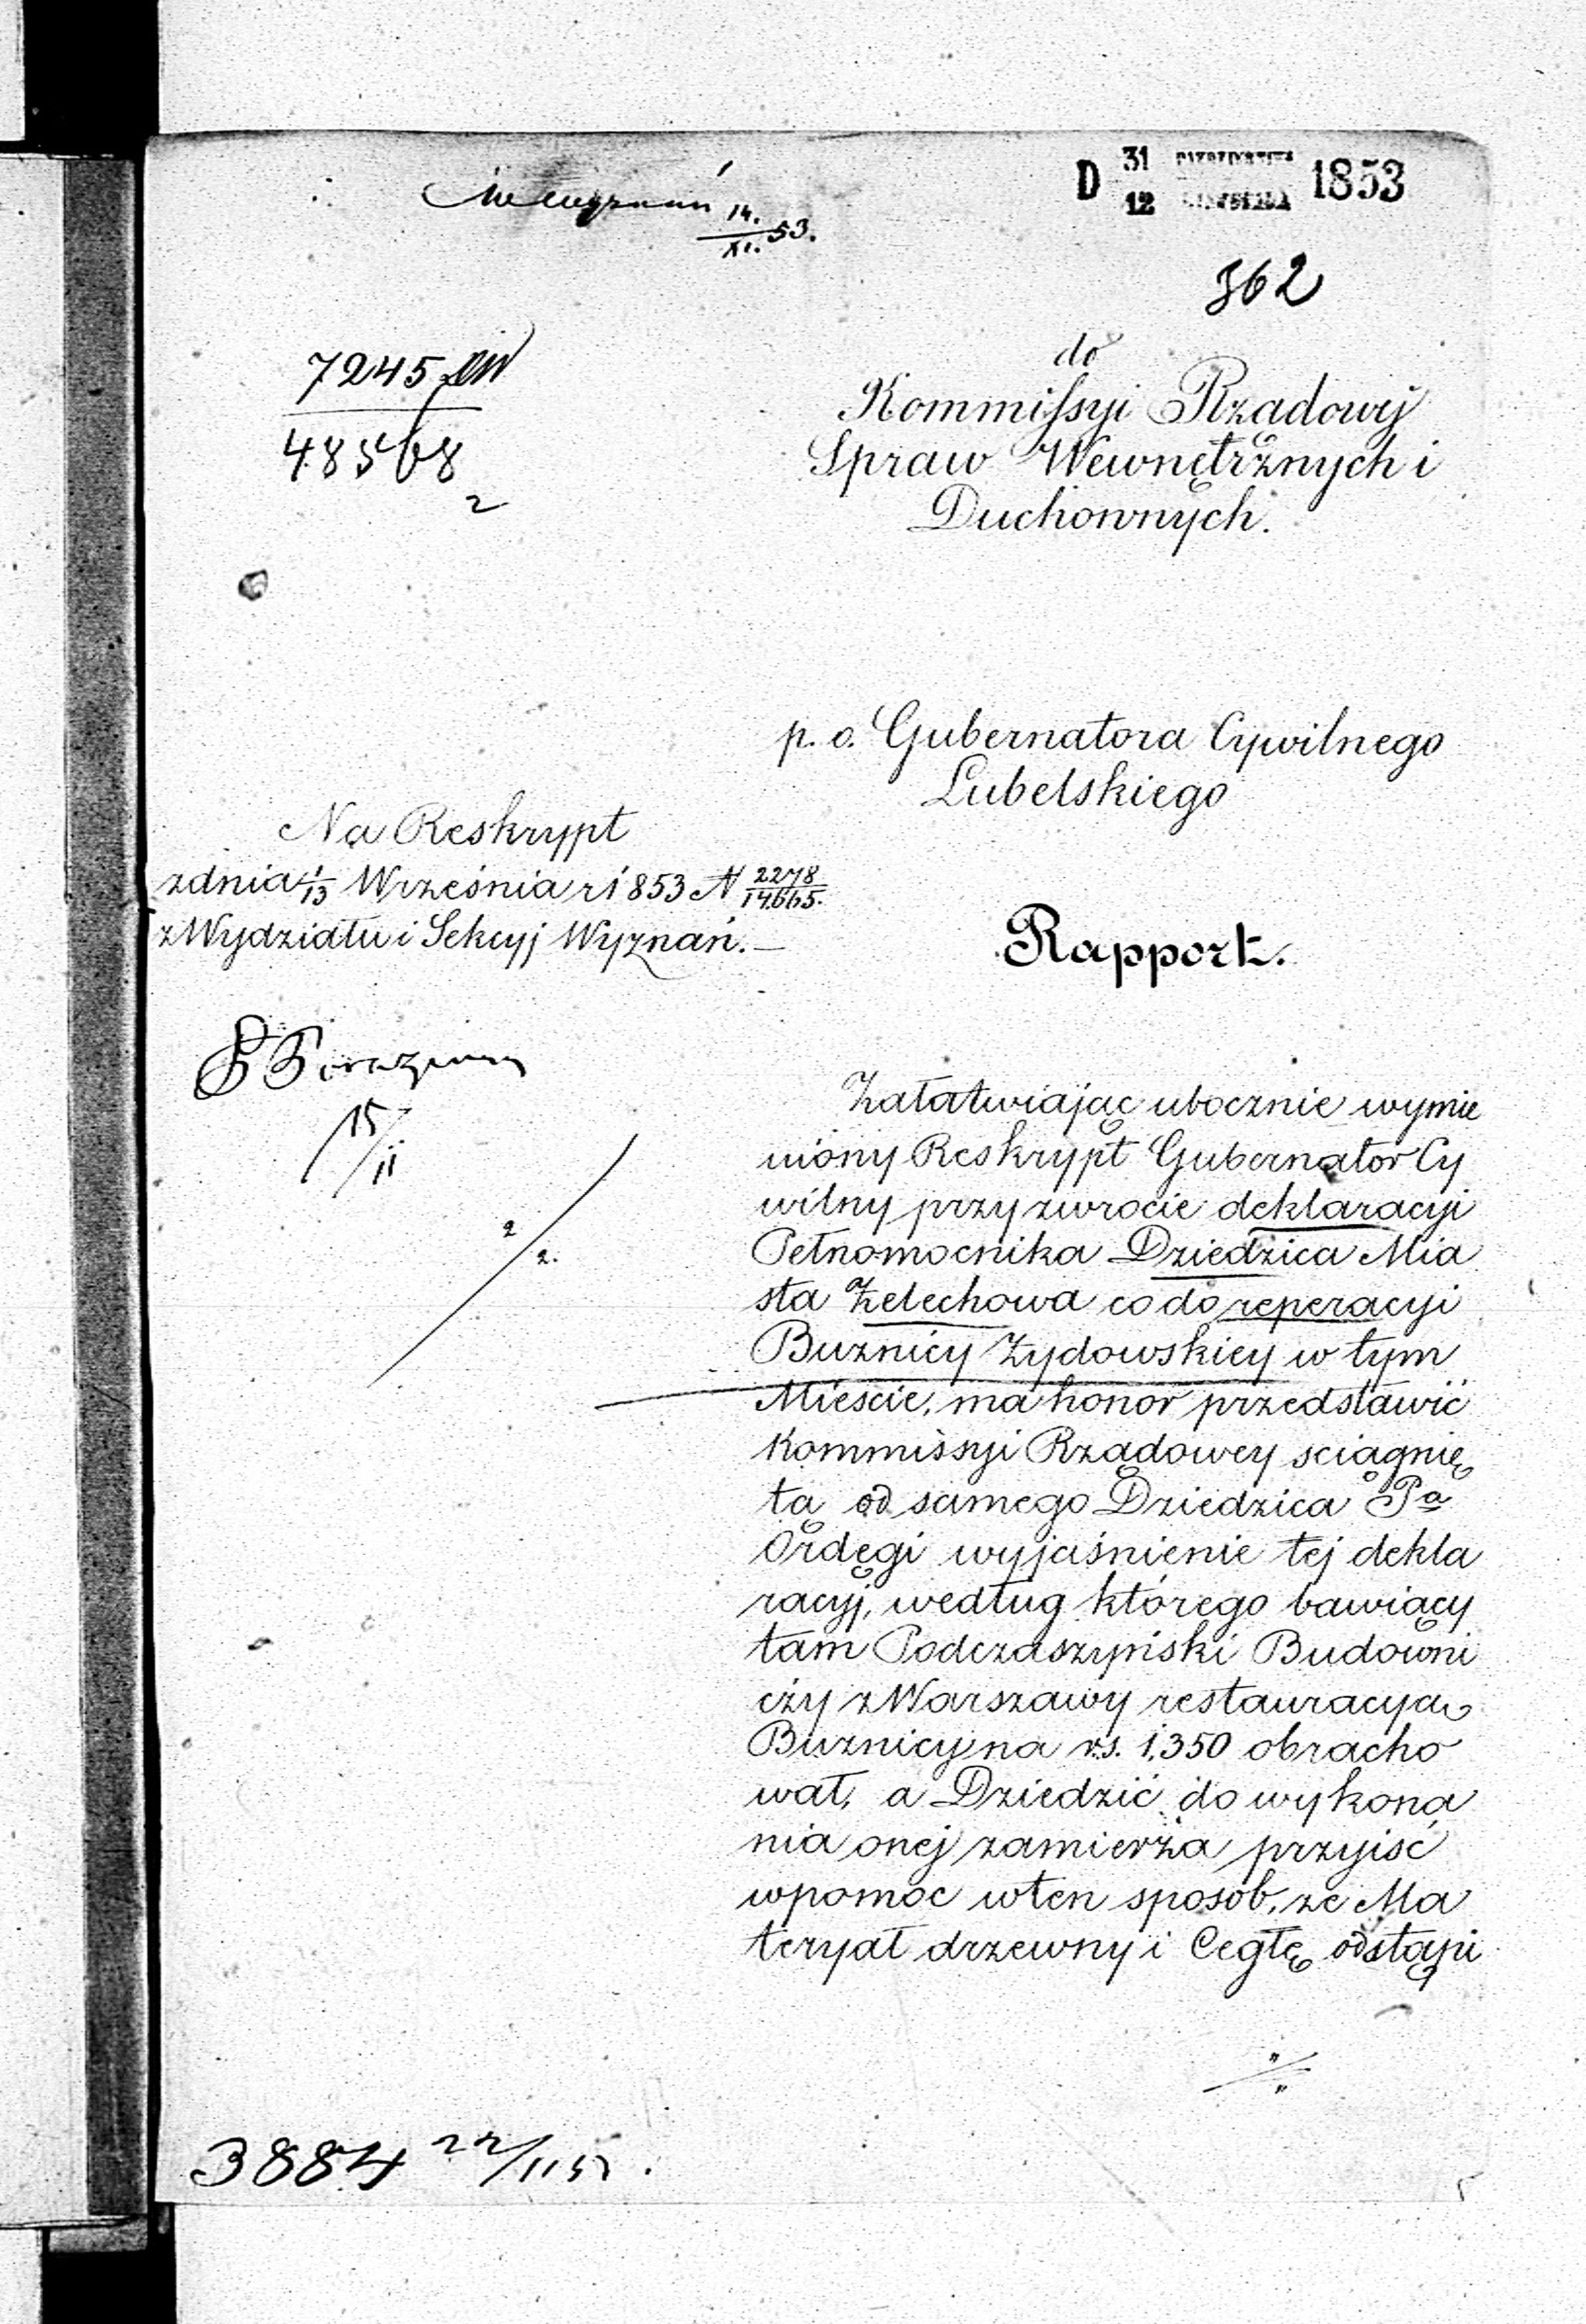 14. / XI. 53.
D 31/12 PAZDZIERNIKA 1853
362
7245
48568
2
do
Kommissyi Rządowéj
Spraw Wewnętrznych i
Duchownych.
p. o. Gubernatora Cywilnego
Lubelskiego
Na Reskrypt
z dnia 1/13 Września r 1853 N 2278/14665.
z Wydziału i Sekcyj Wyznań.—
Rapport.
15/11
Załatwiając ubocznie wymie
niony Reskrypt Gubernator Cy
wilny przy zwrocie deklaracyi
Pełnomocnika Dziedzica Mia
sta Żelechowa co do reperacyi
Bużnicy Żydowskiey w tym
Mieście, ma honor przedstawić
Kommissyi Rządowey sciągnię
tą od samego Dziedzica Pa
Ordęgi wyjaśnienie tej dekla
racyj, według którego bawiący
tam Podczaszyński Budowni
czy z Warszawy restauracyą
Bużnicy na r.s. 1,350 obracho
wał, a Dziedzic do wykona
nia onej zamierza przyiść
w pomoc w ten sposób, że Ma
teryał drzewny i Cegłę odstąpi
3884 22/11 53.